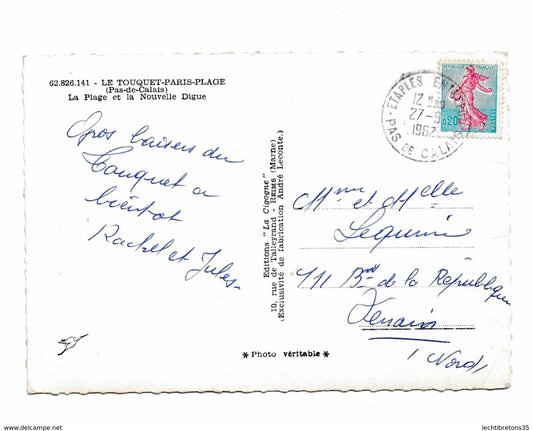 62.826.141 - LE TOUQUET-PARIS-PLAGE
(Pas-de-Calais)
La Plage et la Nouvelle Digue
Gros baisers du
Touquet a
bientot
Rachel et Jules
Editions "La Cigogne"
10, rue de Talleyrand - REIMS (Marne)
(Exclusivité de fabrication André Leconte.)
* Photo véritable *
ETAPLES
12 H30
27-9
1962
PAS DE CALAIS
REPUBLIQUE FRANÇAISE
0,20
POSTES
Mme et Melle
Lequim
111 Bd de la République
Denain
(Nord)
www.delcampe.net
lechtibretons35